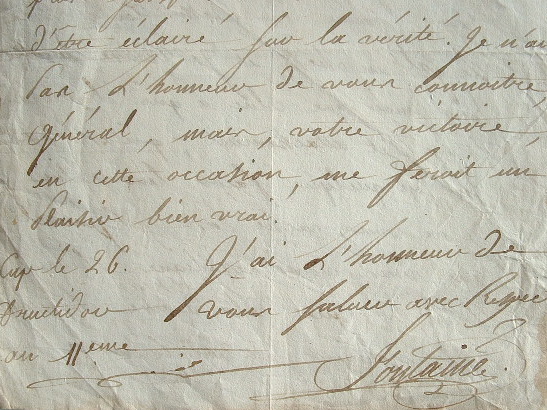 d'être éclairé sur la vérité. Je n'ai
pas L'honneur de vous connoitre,
général, mais, votre victoire,
en cette occasion, me feroit un
plaisir bien vrai.
Cap le 26. J'ai L'honneur de
fructidor vous saluer avec Respec
an 11eme
Fontaine.